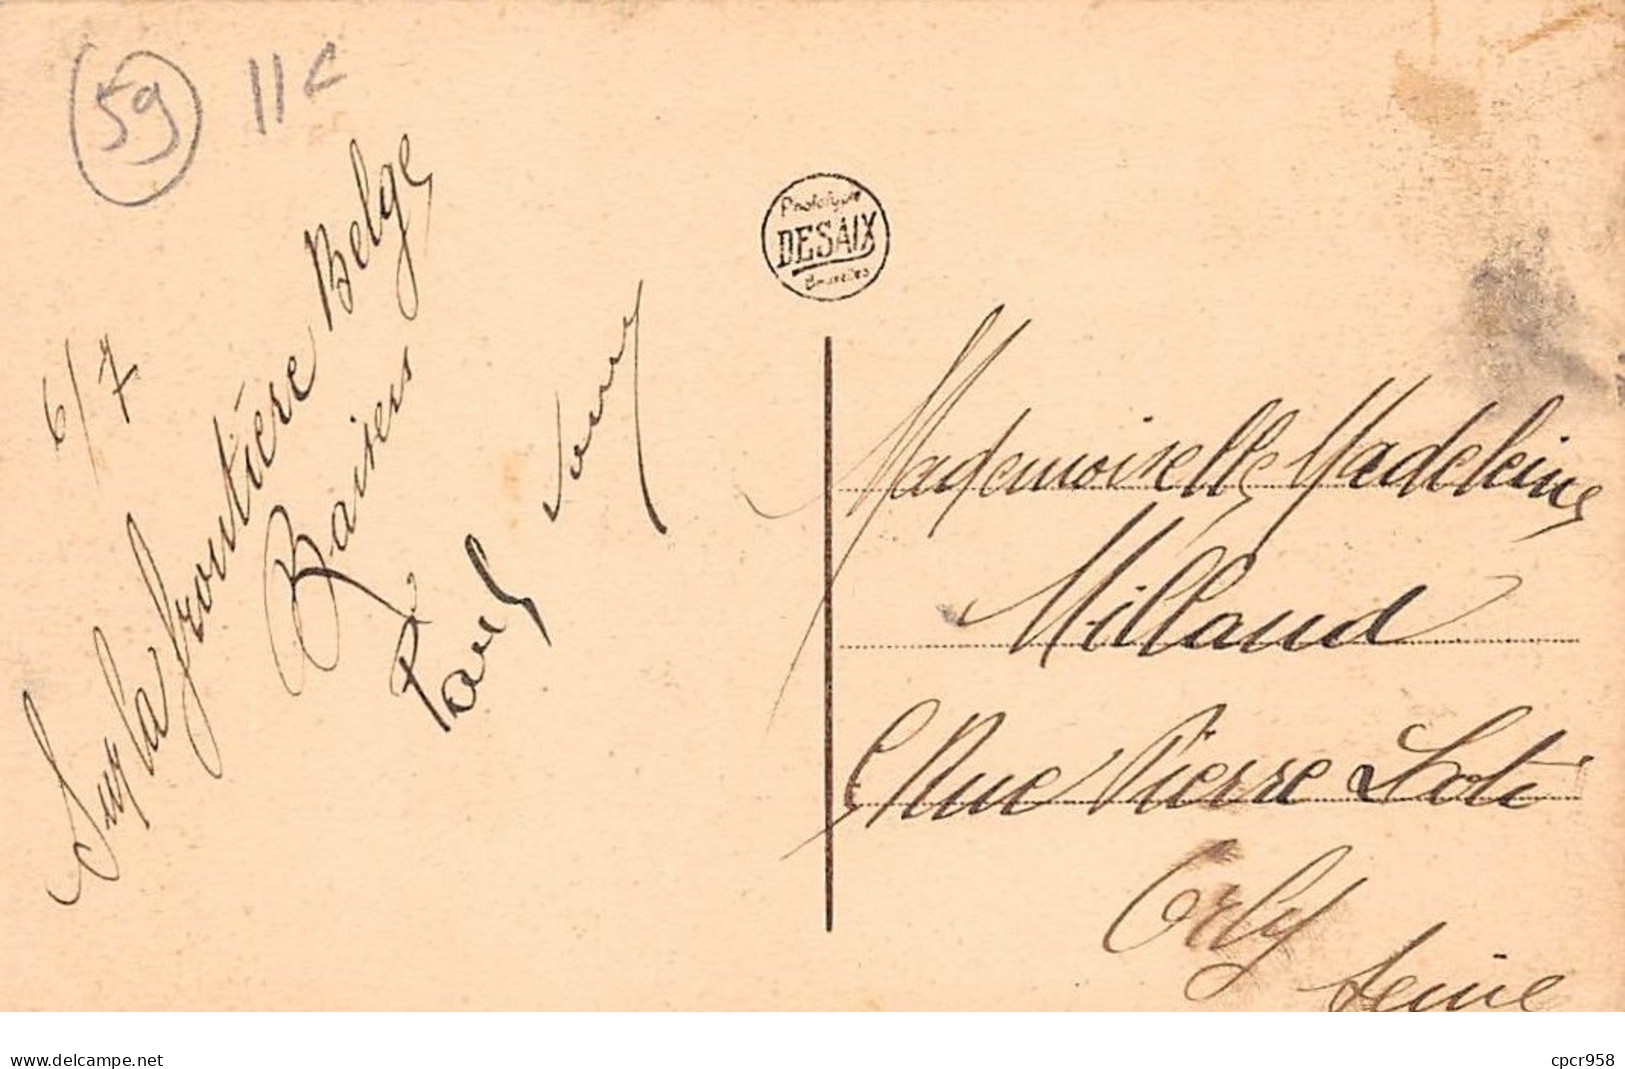 59 11€
6/7
Sur la frontière Belge
Baisers
Paul
Prototypie
DESAIX
Bruxelles
Mademoiselle Madeleine
Millaud
Rue Pierre Loti
Orly
Seine
www.delcampe.net
cpcr958